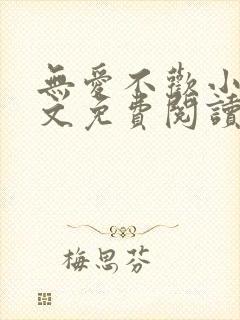 無愛不歡小
文免費閱讀
梅思芬